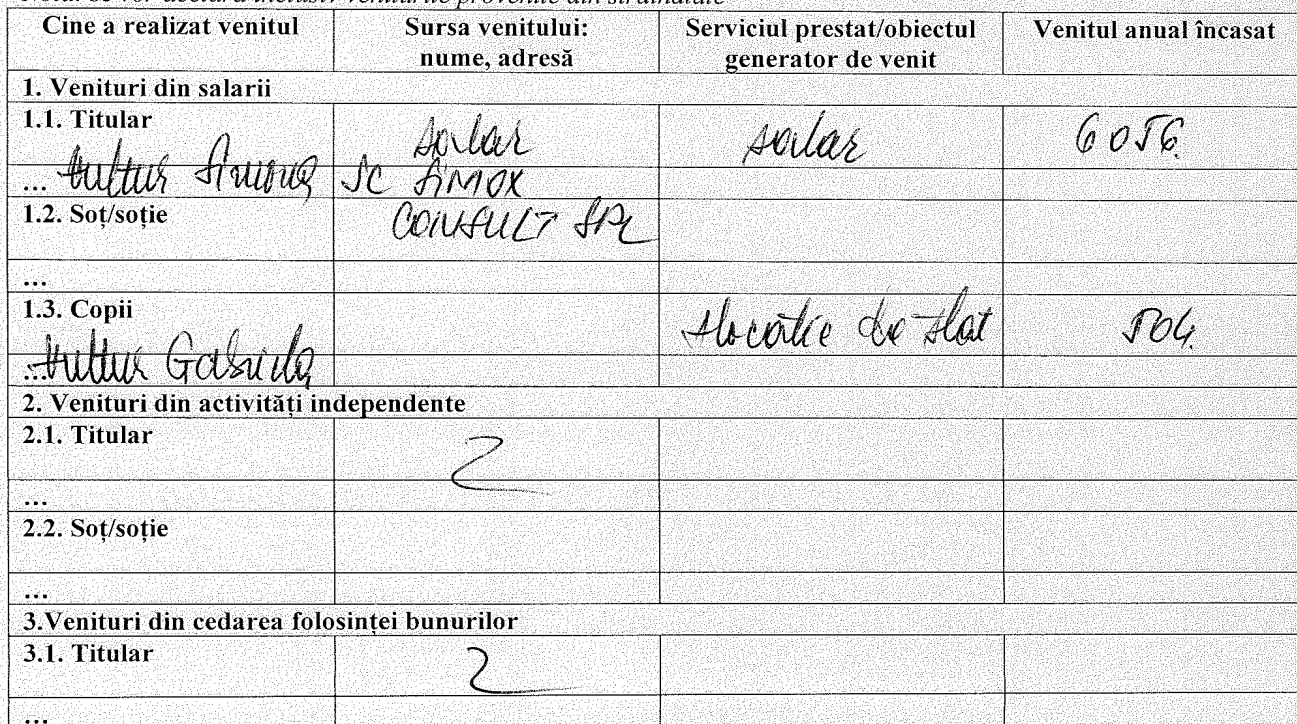 Nota: Se vor declara inclusiv veniturile provenite din străinătate
Cine a realizat venitul | Sursa venitului: nume, adresă | Serviciul prestat/obiectul generator de venit | Venitul anual încasat
1. Venituri din salarii
1.1. Titular | salar | salar | 6056
... Vultur Simona | SC SIMOX
1.2. Soț/soție | CONSULT SRL
...
1.3. Copii | Alocatie de stat | 504
... Vultur Gabriela
2. Venituri din activități independente
2.1. Titular
...
2.2. Soț/soție
...
3.Venituri din cedarea folosinței bunurilor
3.1. Titular
...